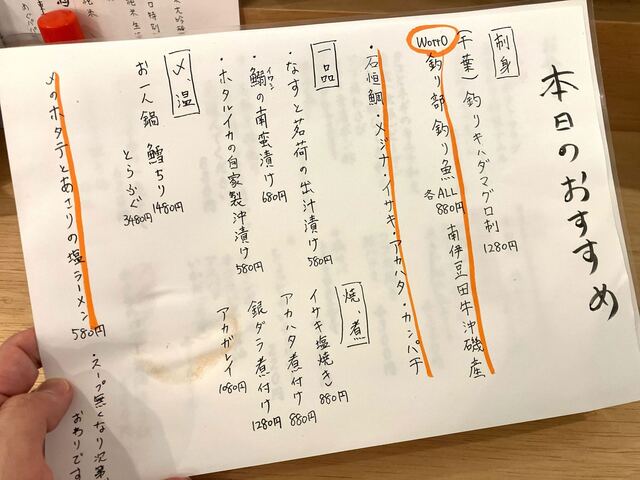 本日のおすすめ
刺身
(千葉)釣りキハダマグロ刺 1280円
釣り部 釣り魚 各ALL 880円 南伊豆田牛沖磯産
・石垣鯛・メジナ・イサキ・アカハタ・カンパチ
一品
・なすと茗荷の出汁漬け 580円
・鰯の南蛮漬け 680円
イワシ
・ホタルイカの自家製沖漬け 580円
焼、煮
イサキ塩焼き 880円
アカハタ煮付け 880円
銀ダラ煮付け 1280円
アカガレイ 1080円
〆、温
お一人鍋 鱈ちり 1480円
とらふぐ 3480円
〆のホタテとあさりの塩ラーメン 580円
・スープ無くなり次第、
おわりです